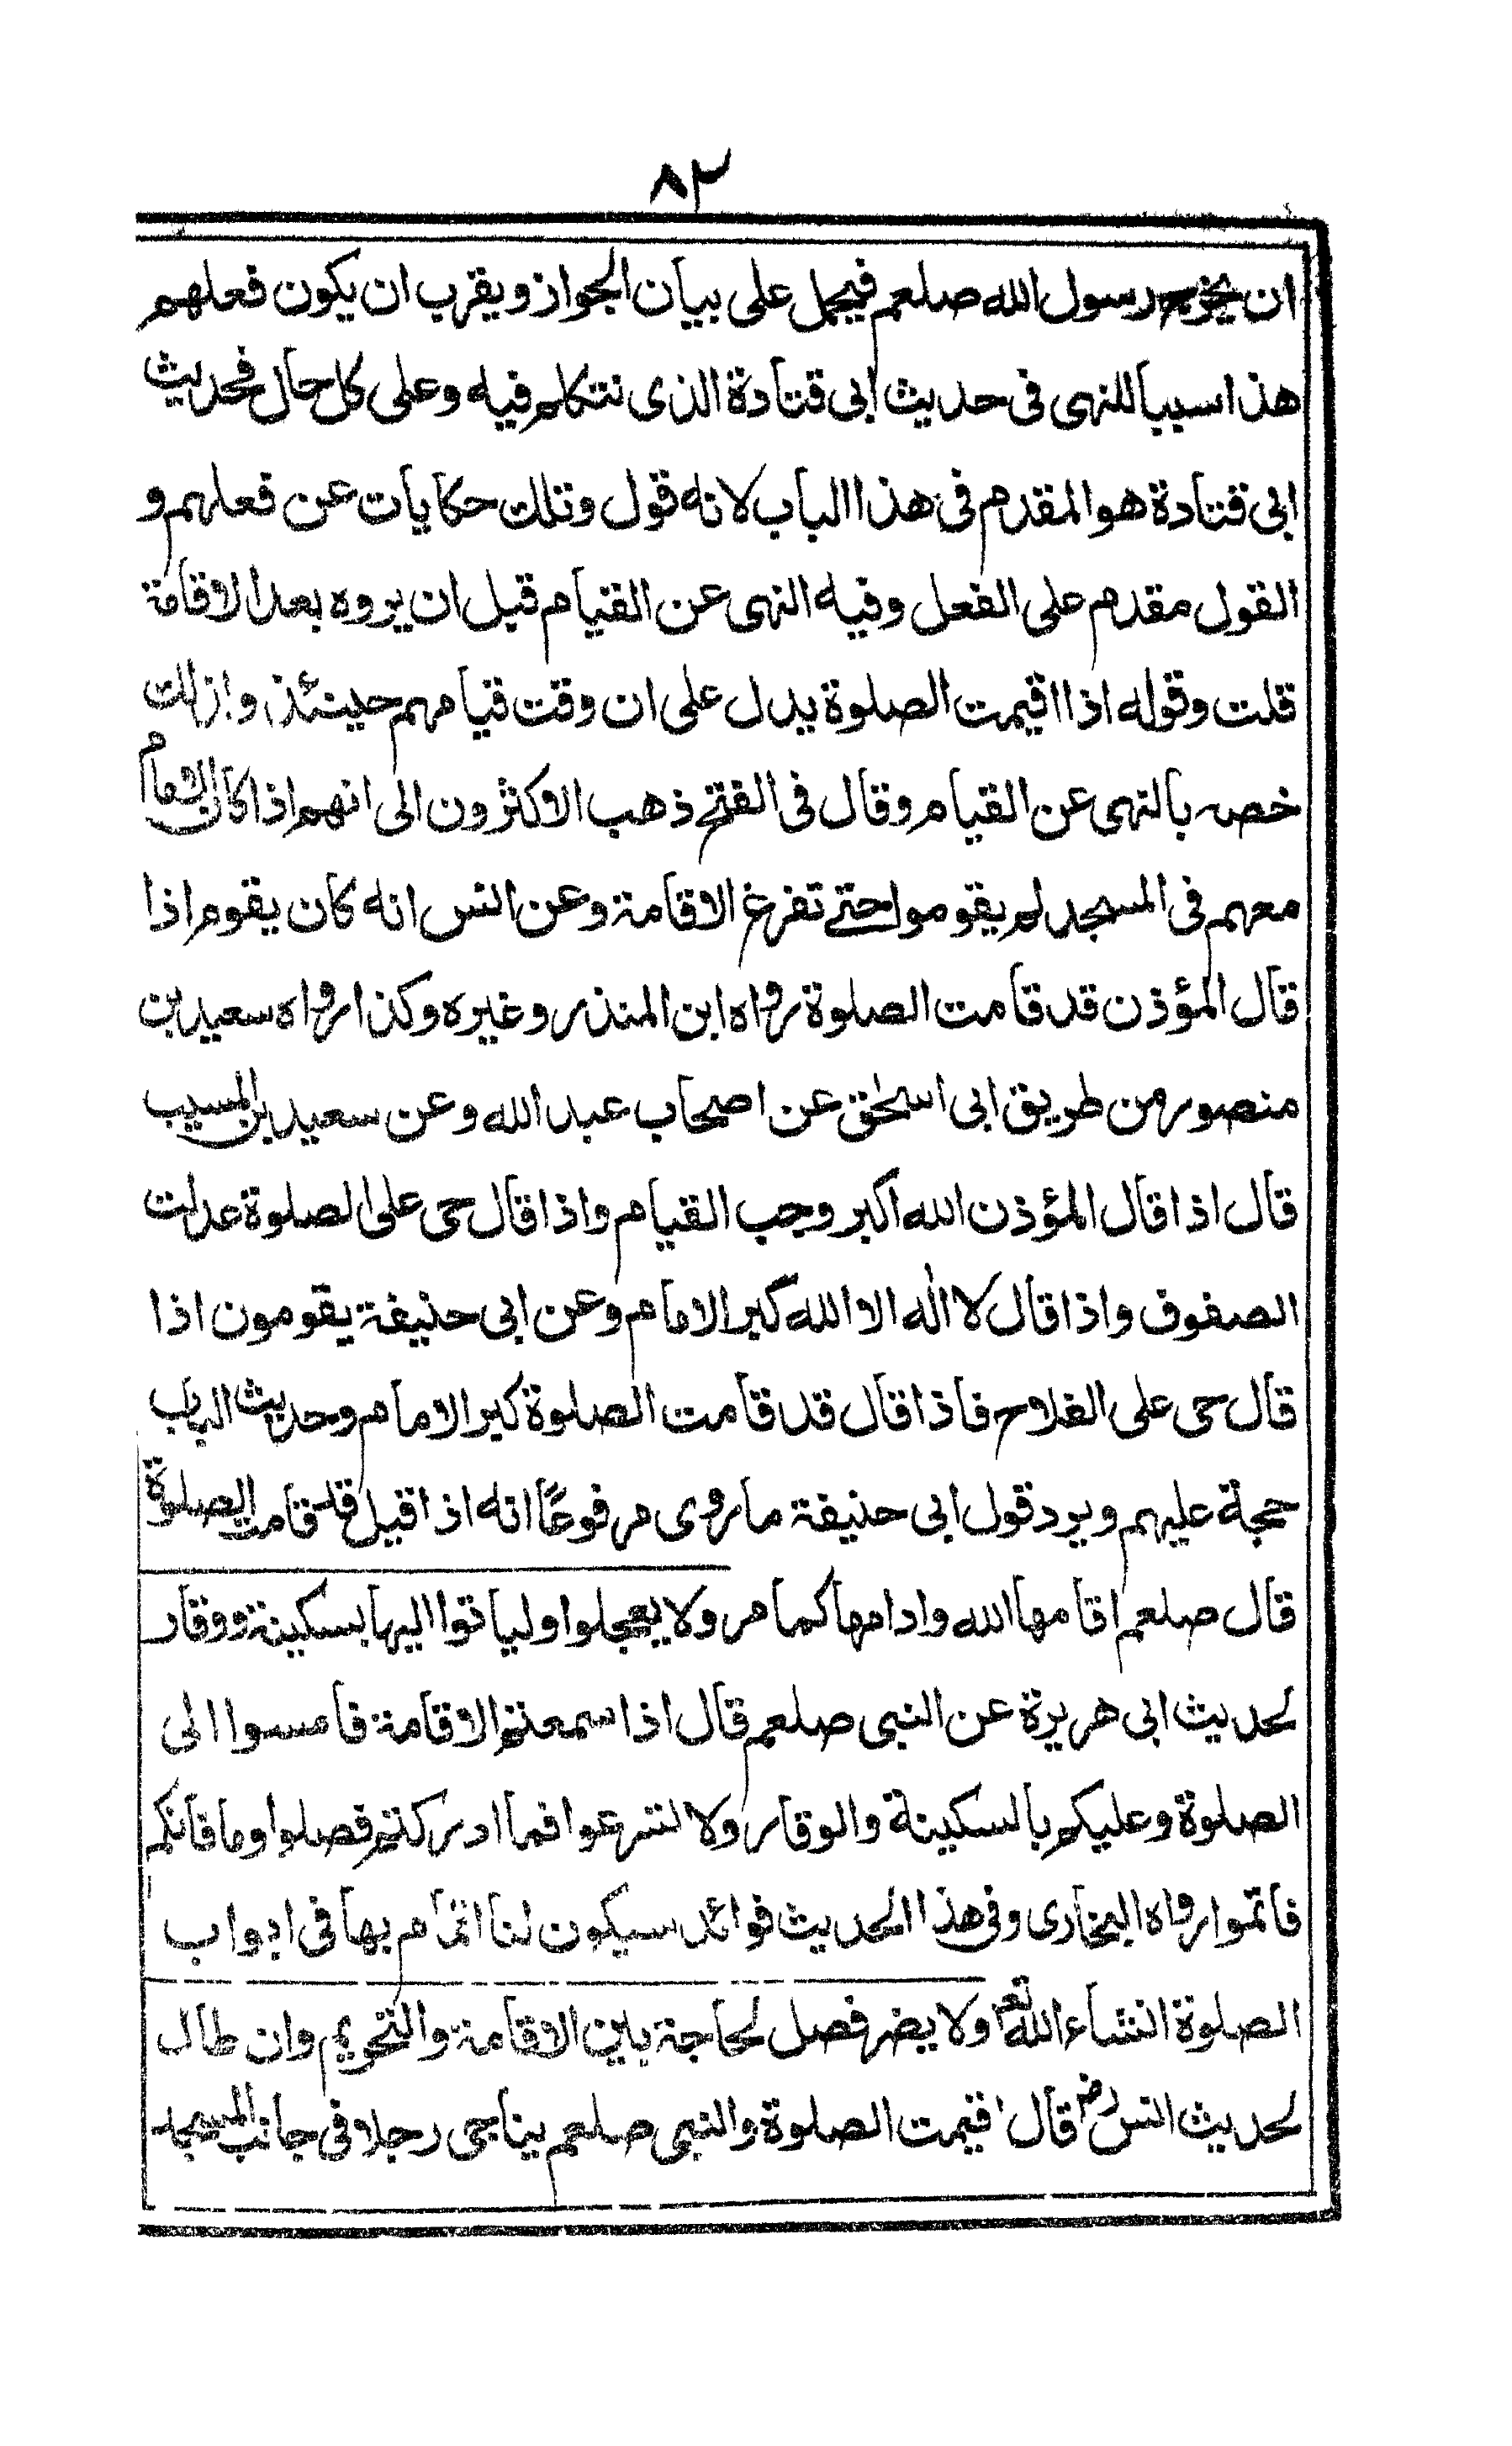 ٨٢
ان يخرج رسول الله صلعم فيحمل على بيان الجواز ويقرب ان يكون فعلهم
هذا سببا للنهى فى حديث ابى قتادة الذى نتكلم فيه وعلى كل حال فحديث
ابى قتادة هو المقدم فى هذا الباب لانه قول وتلك حكايات عن فعلهم و
القول مقدم على الفعل وفيه النهى عن القيام قبل ان يروه بعد الاقامة
قلت وقوله اذا اقيمت الصلوة يدل على ان وقت قيامهم حينئذ وازلت
خصه بالنهى عن القيام وقال فى الفتح ذهب الاكثرون الى انهم اذا كان الامام
معهم فى المسجد لم يقوموا حتى تفرغ الاقامة وعن انس انه كان يقوم اذا
قال المؤذن قد قامت الصلوة رواه ابن المنذر وغيره وكذا رواه سعيد بن
منصور من طريق ابى اسحٰق عن اصحاب عبد الله وعن سعيد بن المسيب
قال اذا قال المؤذن الله اكبر وجب القيام واذا قال حى على الصلوة عدلت
الصفوف واذا قال لا اله الا الله كبر الامام وعن ابى حنيفة يقومون اذا
قال حى على الفلاح فاذا قال قد قامت الصلوة كبر الامام وحديث الباب
حجة عليهم ويرد قول ابى حنيفة ما روى مرفوعًا انه اذا قيل قد قامت الصلوة
قال صلعم اقامها الله وادامها كما مر ولا يعجلوا ولياتوا اليها بسكينة ووقار
لحديث ابى هريرة عن النبى صلعم قال اذا سمعتم الاقامة فامسوا الى
الصلوة وعليكم بالسكينة والوقار ولا تسرعوا فما ادركتم فصلوا وما فاتكم
فاتموا رواه البخارى وفى هذا الحديث فوائد سيكون لنا المام بها فى ابواب
الصلوة انشاء الله تع اولا يضر فصل لحاجة بين الاقامة والتحريم وان طال
لحديث انس رض قال اقيمت الصلوة والنبى صلعم يناجى رجلا فى جانب المسجد